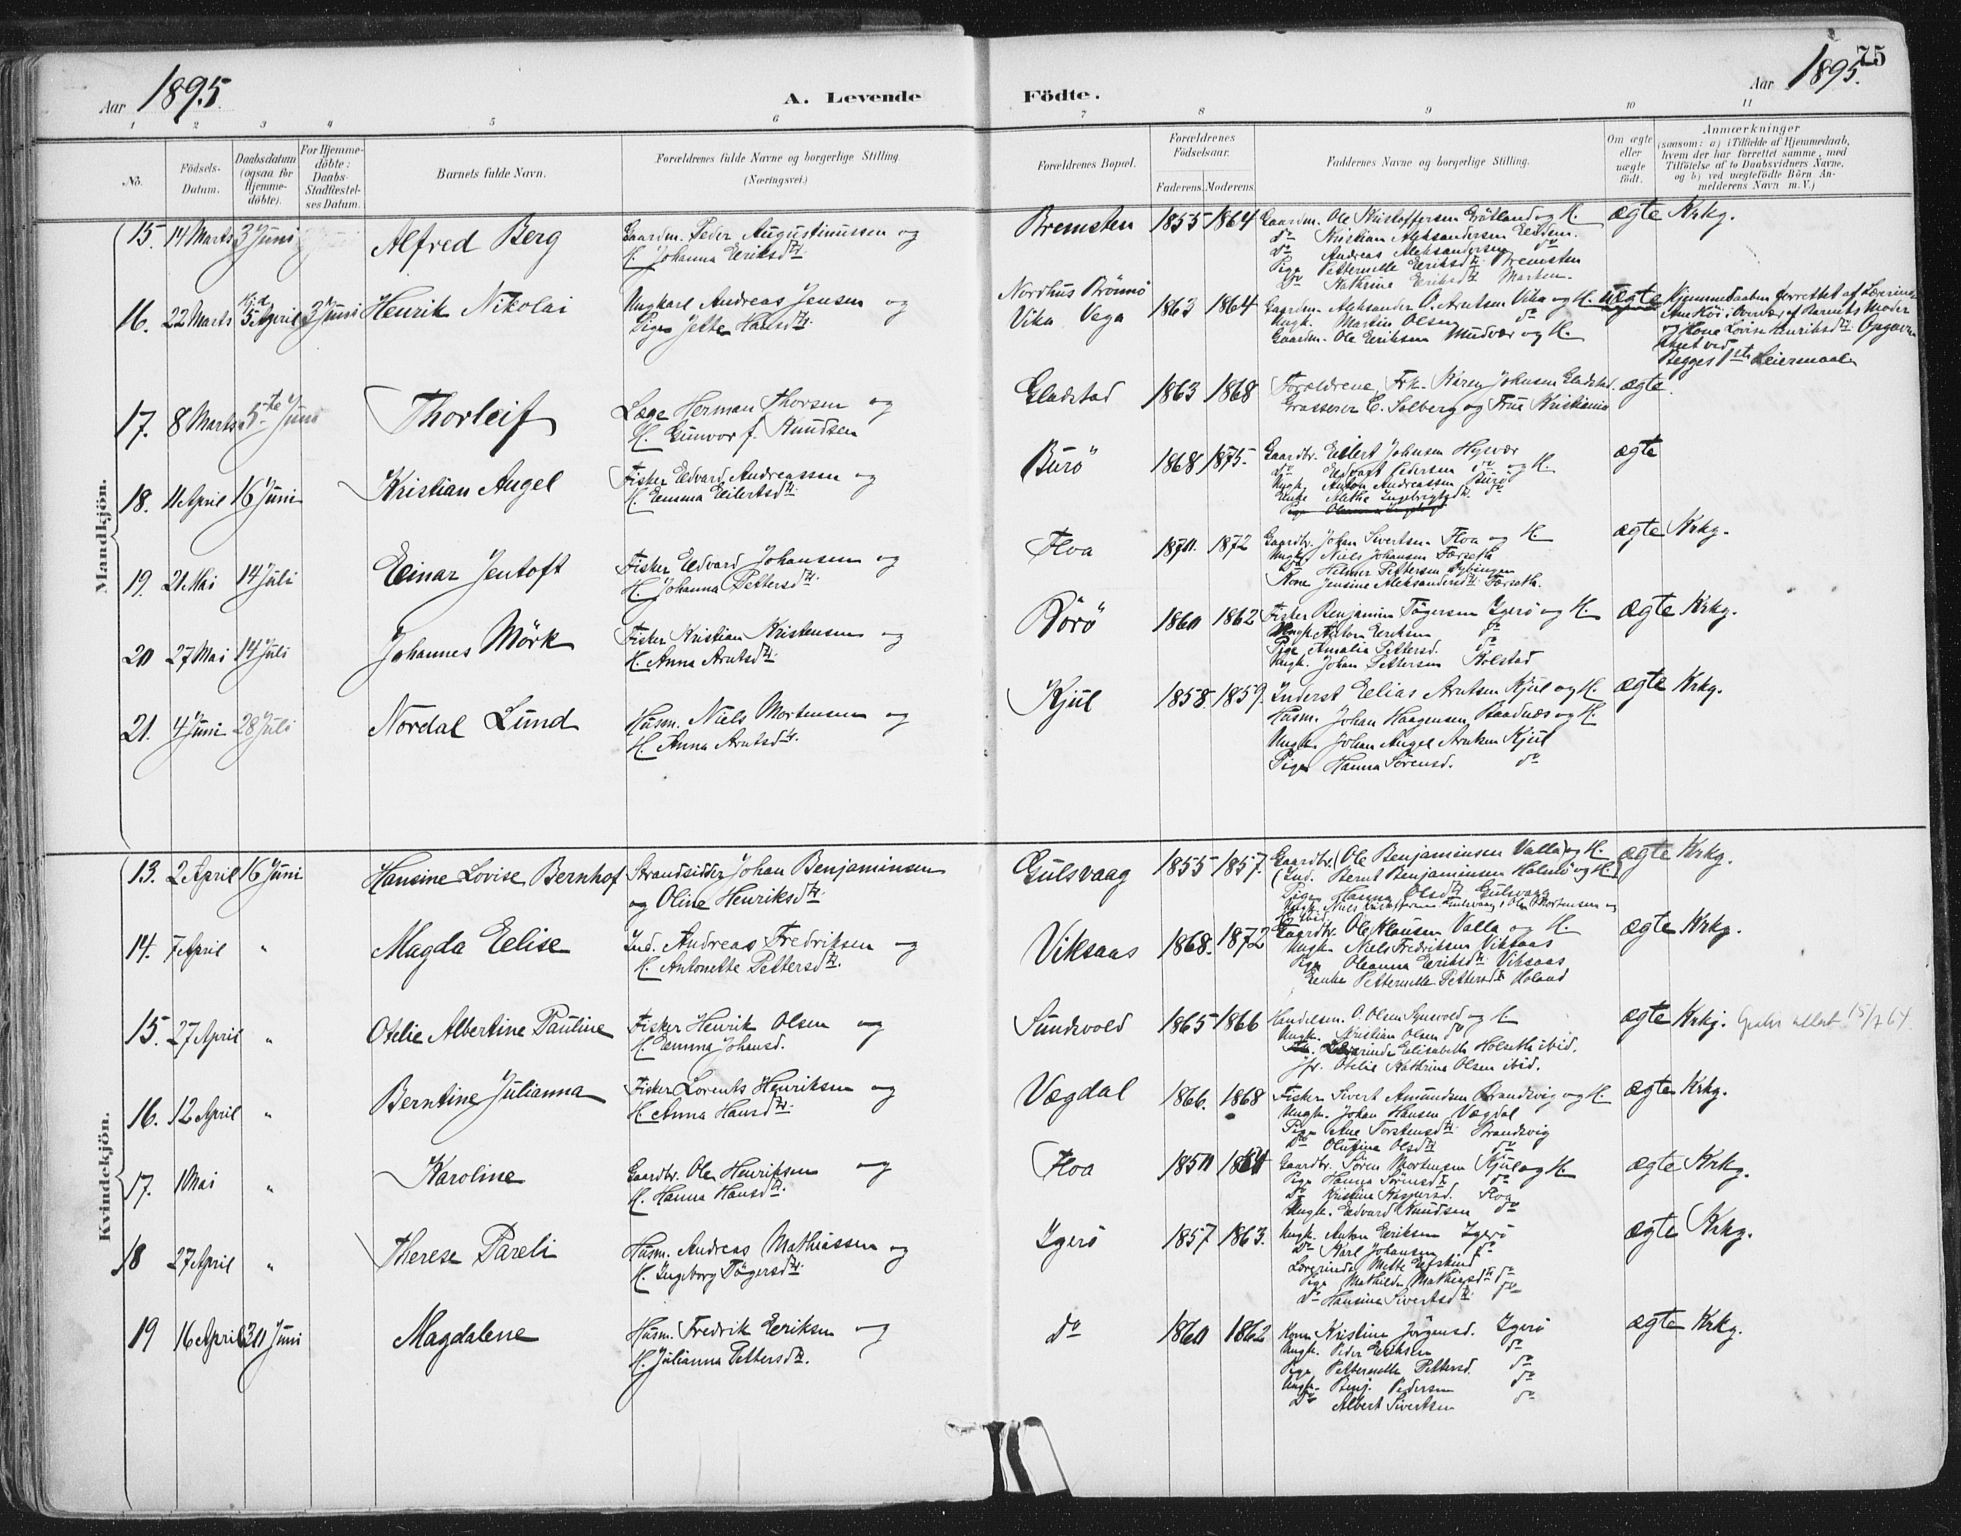 75
Aar 1895.
A. Levende
Födte.
Aar 1895.
1 2 3 4 5 6 7 8 9 10 11
No.
Födsels-Datum.
Daabsdatum (ogsaa for Hjemme-döbte).
For Hjemme-döbte: Daabs-Stadfæstel-ses Datum.
Barnets fulde Navn.
Forældrenes fulde Navne og borgerlige Stilling. (Næringsvei.)
Forældrenes Bopæl.
Forældrenes Födselsaar.
Faderens. Moderens.
Faddernes Navne og borgerlige Stilling.
Om ægte eller uægte födt.
Anmærkninger
(saasom: a) i Tilfælde af Hjemmedaab, hvem der har forrettet samme, med Tilföielse af to Daabsvidners Navne, og b) ved uægtefödte Börn An-melderens Navn m. V.)
Mandkjön.
15. 14 Marts 3 Juni Alfred Berg
Gaardm. Peder Augustinussen og
H. Johanna Eriksdtr.
Bremsten 1855 1864
Gaardm. Ole Kristoffersen Grötland og H.
do Kristian Aleksandersen
do Andreas Aleksandersen do
Pige Petternelle Eriksdtr. Bremsten
do Kathrine Eriksdtr.
ægte Krkg.
16. 22 Marts 5 April 3 Juni Henrik Nikolai
Ungkarl Andreas Jensen og
Pige Jette Hansdtr.
Nordhus Brönnö
Vika Vega 1863 1864
Gaardm. Aleksander O. Arntsen Vika og H.
Ungk. Martin Olsen do
Gaardm. Ole Eriksen Mudvær og H.
uægte
Hjemmedaaben forrettet af
Overvær af Barnets Moder
og Lovise Henriksdtr.
Begges 1ste Leiermaal
17. 8 Marts 5te Juni Thorleif
Læge Herman Thorsen og
H. Gunvor f. Knudsen
Gladstad 1863 1868
Forældrene, Frk. Karen Johnsen Gladstad
Grosserer E. Solberg og Frue Kristiania
ægte.
18. 11 April 16 Juni Kristian Angel
Fisker Edvard Andreassen og
H. Emma Eilertsdtr.
Burö 1868. 1875.
Gaardbr. Eilert Johnsen Hysvær
do Edvart Petersen do og H.
Ungk. Anton Andreassen Burö
Enke Alethe Ingebrigtsdtr. do
ægte
19. 21 Mai 14 Juli Einar Jentoft
Fisker Edvard Johansen og
H. Johanna Pettersdtr.
Floa 1870. 1872
Gaardbr. Johan Sivertsen Floa og H.
Ungk. Niels Johansen Færseth
do Helmer Pettersen
Kone Jensine Aleksandersdtr. Færseth.
ægte Krkg.
20 27 Mai 14 Juli Johannes Mörk
Fisker Kristian Kristensen og
H. Anna Arntsdtr.
Rörö 1860 1862
Fisker Benjamin Tögersen Igerö og H.
Ungk. Anton Eriksen do
Pige Amalia Pettersd. do
Ungk. Johan Pettersen Holstad
ægte Krkg.
21. 4 Juni 28 Juli Nordal Lund
Husm. Niels Mortensen og
H. Anna Arntsdtr.
Kjul 1858. 1859.
Inderst Elias Arntsen Kjul og H.
Husm. Johan Haagensen Raadnæs og H.
Ungk. Johan Angel Arntsen Kjul
Pige Hanna Sörensd. do
ægte Krkg.
Kvindekjön.
13. 2 April 16 Juni Hansine Lovise Bernhof
Strandsidder Johan Benjaminsen
og Oline Henriksdtr.
Gulsvaag 1855 1857.
Gaardbr. (Ole Benjaminsen Valla) og H.
(Ind. Bernt Benjaminsen Holmö og H.)
Pige Hanna Olsdtr. Gulsvaag
ægte Krkg.
14. 7 April " Magda Elise
Ind. Andreas Fredriksen og
H. Antonette Pettersdtr.
Viksaas 1868. 1872
Gaardbr. Ole Klausen Valla og H.
Ungk. Niels Fredriksen Viksaas
Pige Oleanna Eriksdtr. Viksaas
Enke Petternelle Pettersdtr. Holand
ægte Krkg.
15. 27 April " Otelie Albertine Pauline
Fisker Henrik Olsen og
H. Emma Johansd.
Sundsvold 1865 1866
Handelsm. O. Olsen Synsvold og H
Ungk. Kristian Olsen do
Lærerinde Elisabeth Holseth ibid.
Jfr. Otelie Kathrine Olsen ibid.
ægte Krkg. 15/7 64
16. 12 April " Berntine Julianna
Fisker Lorents Henriksen og
H. Anna Hansdtr.
Vægdal 1866. 1868
Fisker Sivert Amundsen Brandsvig og H.
Ungk. Johan Hansen Vægdal
Pige Ane Torstensdtr. Brandsvig
do Olufine Olsdtr. do
ægte Krkg.
17. 1 Mai " Karoline
Gaardbr. Ole Henriksen og
H. Hanna Hansdtr.
Floa 1850 1864
Gaardbr. Sören Mortensen Kjul og H.
Pige Hanna Sörensdtr. do
do Kristine Kaspersd. Floa
Ungk. Edvard Knudsen do
ægte Krkg.
18 27 April " Therese Pareli
Husm. Andreas Mathiassen og
H. Ingeborg Tögersdtr.
Igerö 1857 1863.
Ungk. Anton Eriksen Igerö
do Karl Johansen do
Lærerinde Mette
Pige Mathilde Mathiasdtr. do
do Hansine Sivertsdtr. do
ægte Krkg.
19 16 April 30 Juni Magdalene
Husm. Fredrik Eriksen og
H. Julianna Pettersdtr.
do 1860 1862
Kone Kristine Jörgensd. Igerö
Ungk. Peder Eriksen do
Pige Petternelle Pettersd. do
Ungk. Benj. Pedersen do
do Albert Sivertsen do
ægte Krkg.